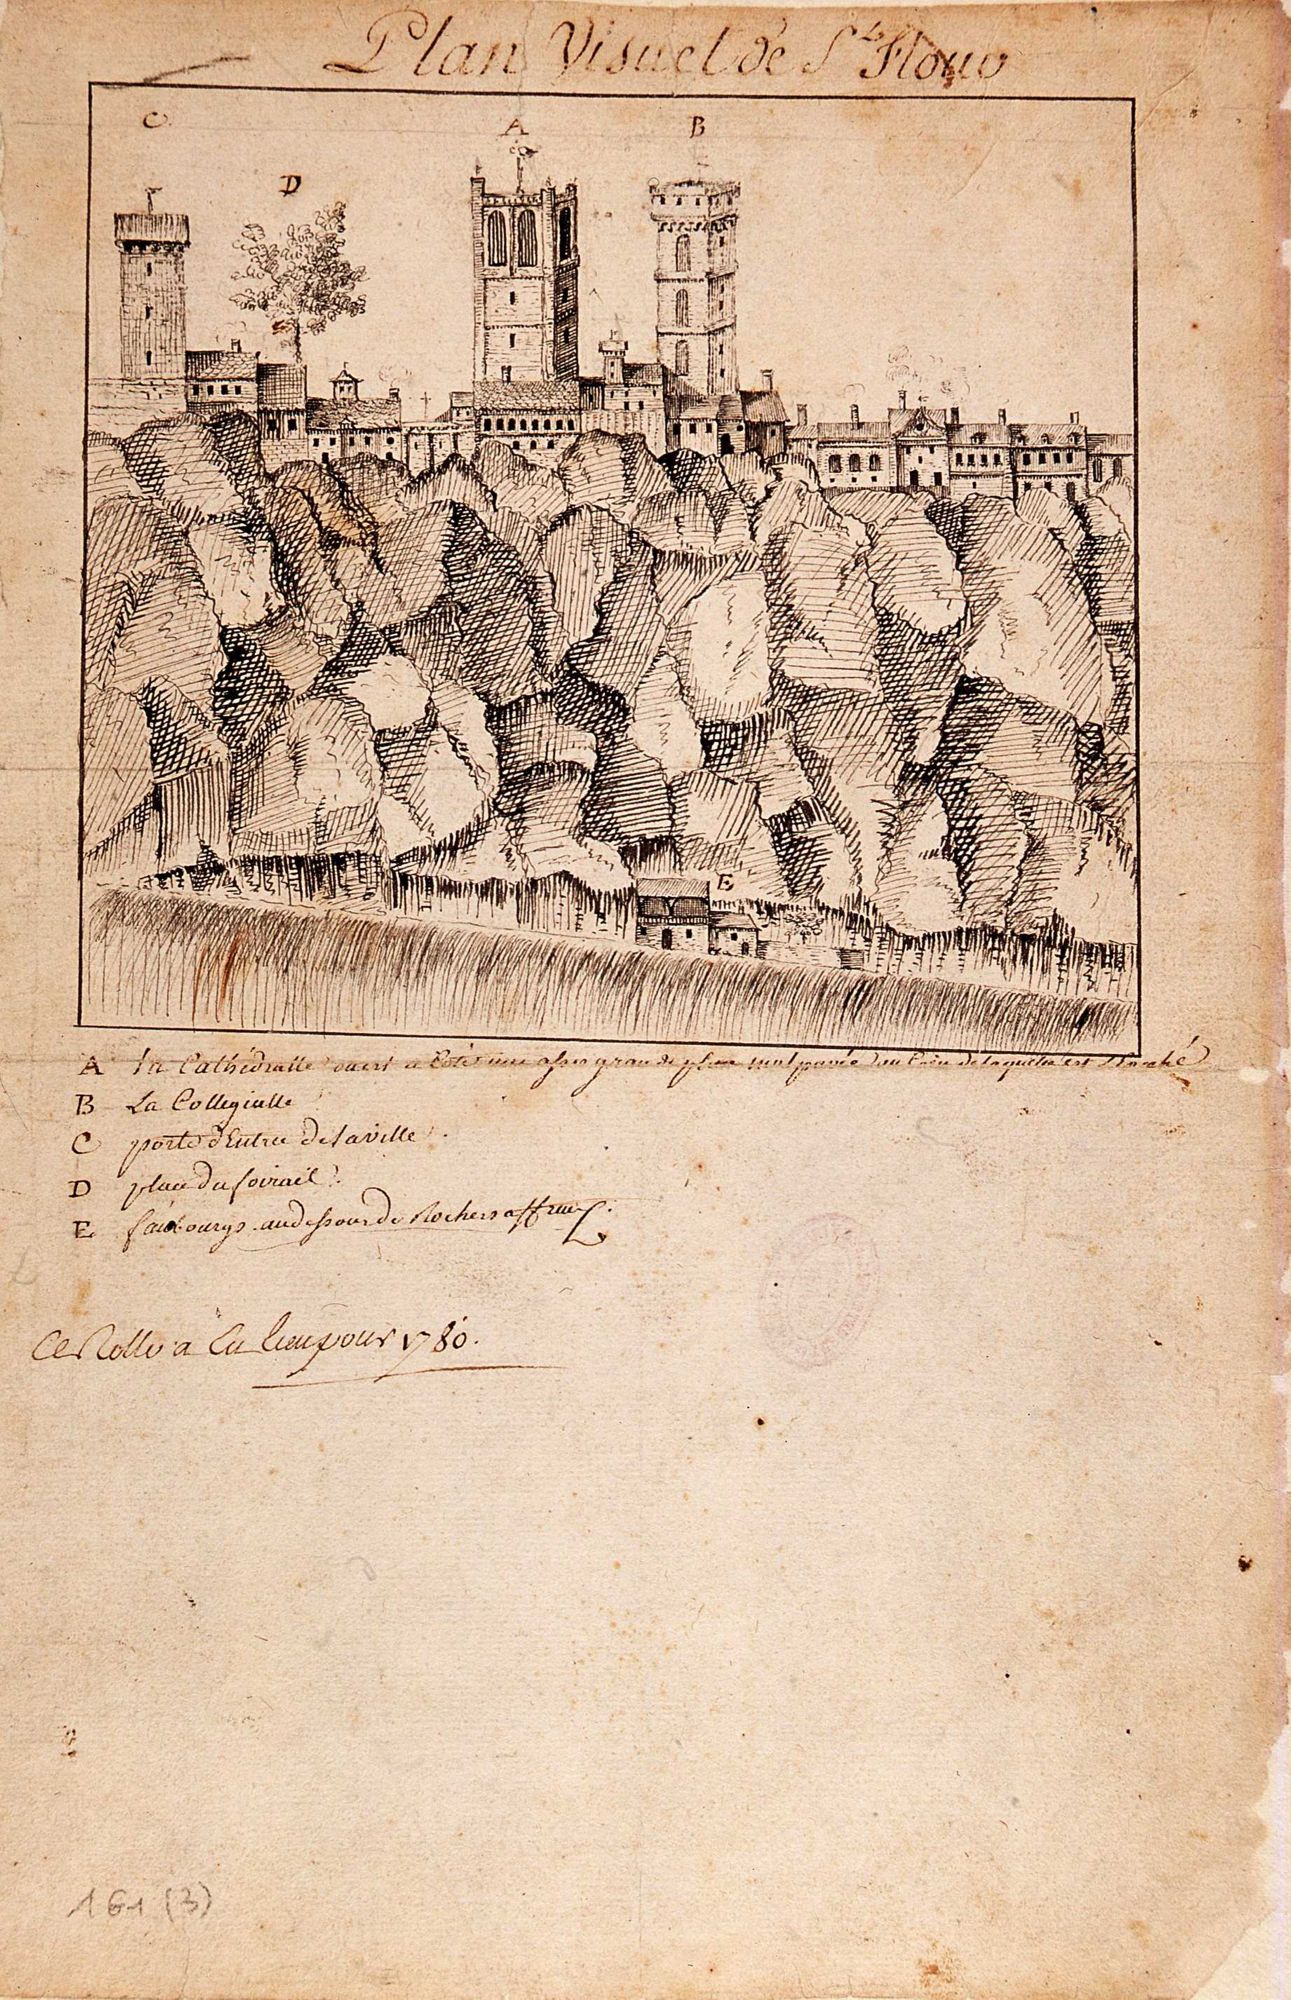 Plan Visuel de St. Flour
C
A
B
D
E
A la Cathédralle ouest a Coté une assez grande place mal pavée au Coin de laquelle est l'
B La Collegialle
C porte d'Entree de la ville
D place du foirail
E fauxbourgs audessous de Rochers affreux
Ce Rolle a Eu lieu pour 1780.
161 (3)